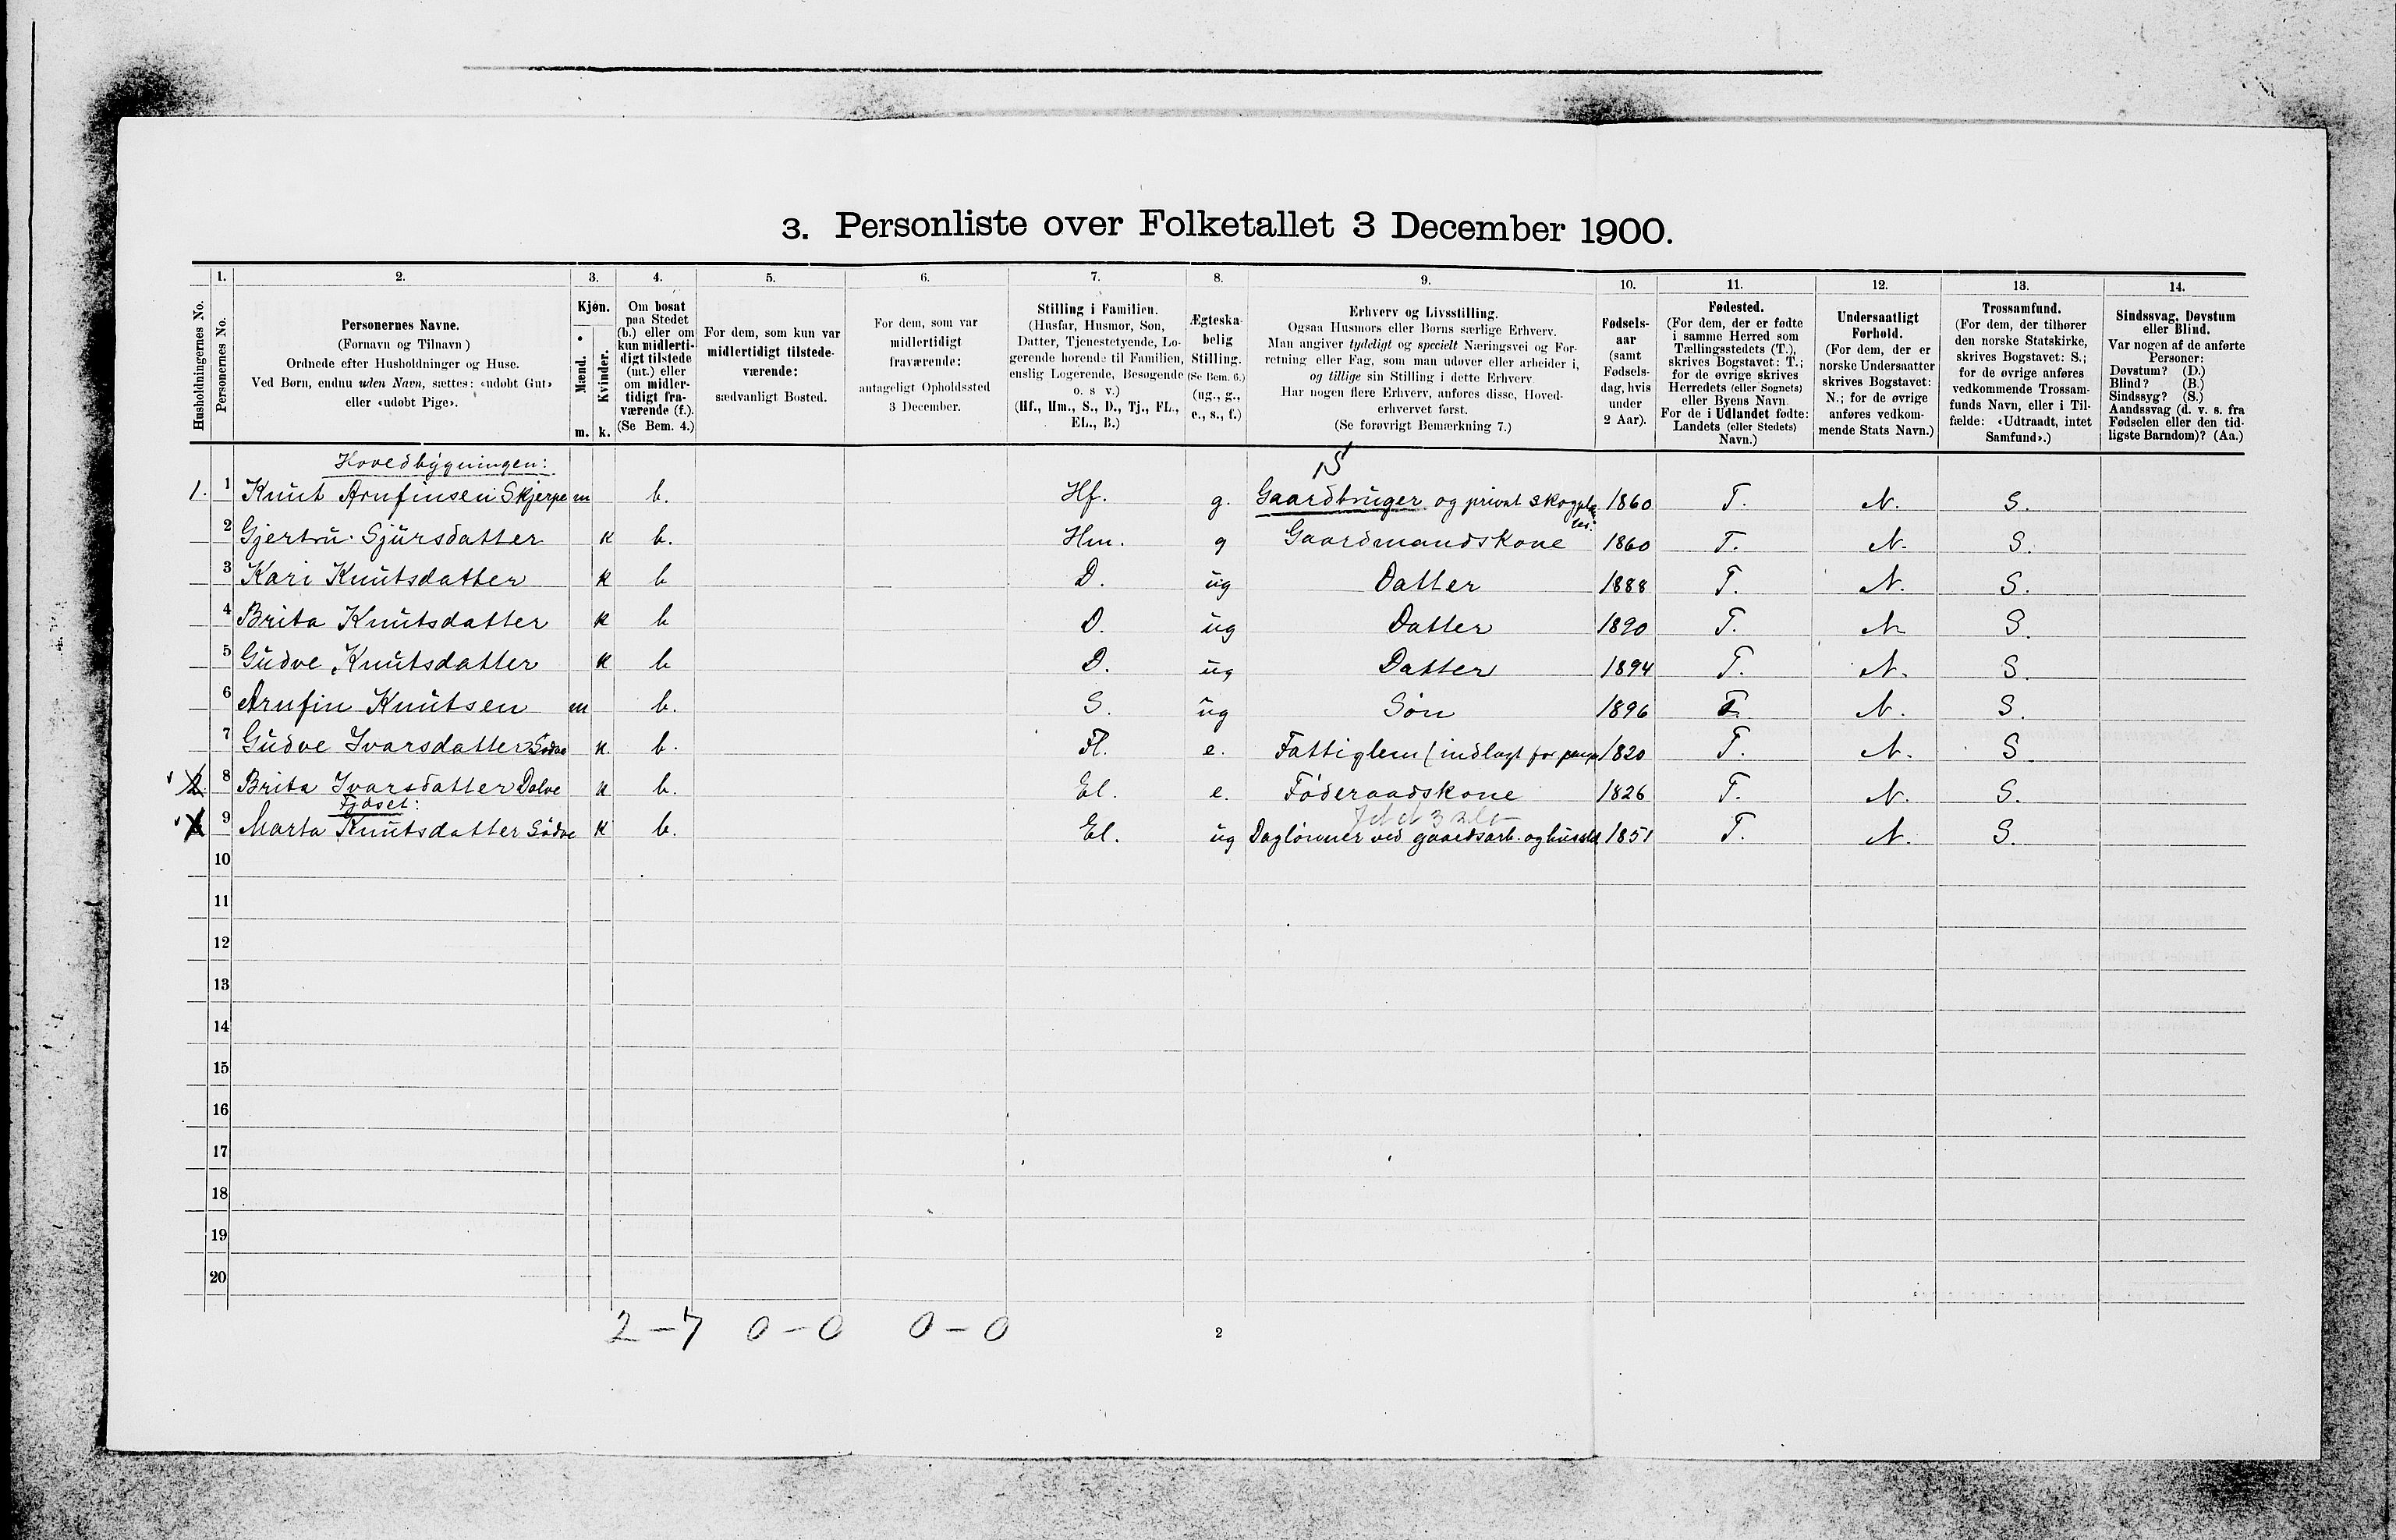 3. Personliste over Folketallet 3 December 1900.
Husholdningernes No.
1.
Personernes No.
2.
Personernes Navne.
(Fornavn og Tilnavn)
Ordnede efter Husholdninger og Huse.
Ved Børn, endnu uden Navn, sættes: «udøbt Gut»
eller «udøbt Pige».
3.
Kjøn.
Mænd.
Kvinder.
m. k.
4.
Om bosat
paa Stedet
(b.) eller om
kun midlerti-
digt tilstede
(mt.) eller
om midler-
tidigt fra-
værende (f.).
(Se Bem. 4.)
5.
For dem, som kun var
midlertidigt tilstede-
værende:
sædvanligt Bosted.
6.
For dem, som var
midlertidigt
fraværende:
antageligt Opholdssted
3 December.
7.
Stilling i Familien.
(Husfar, Husmor, Søn,
Datter, Tjenestetyende, Lo-
gerende hørende til Familien,
enslig Logerende, Besøgende
o. s v.)
(Hf., Hm., S., D., Tj., FL.,
EL., B.)
8.
Ægteska-
belig
Stilling.
(Se Bem. 6.)
(ug., g.,
e., s., f.)
9.
Erhverv og Livsstilling.
Ogsaa Husmors eller Børns særlige Erhverv.
Man angiver tydeligt og specielt Næringsvei og For-
retning eller Fag, som man udøver eller arbeider i,
og tillige sin Stilling i dette Erhverv
Har nogen flere Erhverv, anføres disse, Hoved-
erhvervet først.
(Se forøvrigt Bemærkning 7.)
10.
Fødsels-
aar
(samt
Fødsels-
dag, hvis
under
2 Aar).
11.
Fødested.
(For dem, der er fødte
i samme Herred som
Tællingsstedets (T.),
skrives Bogstavet: T.;
for de øvrige skrives
Herredets (eller Sognets)
eller Byens Navn.
For de i Udlandet fødte:
Landets (eller Stedets)
Navn.)
12.
Undersaatligt
Forhold.
(For dem, der er
norske Undersaatter
skrives Bogstavet:
N.; for de øvrige
anføres vedkom-
mende Stats Navn.)
13.
Trossamfund.
(For dem, der tilhører
den norske Statskirke,
skrives Bogstavet: S.;
for de øvrige anføres
vedkommende Trossam-
funds Navn, eller i Til-
fælde: «Udtraadt, intet
Samfund».)
14.
Sindssvag, Døvstum
eller Blind.
Var nogen af de anførte
Personer:
Døvstum? (D.)
Blind? (B.)
Sindssyg? (S.)
Aandssvag (d. v. s. fra
Fødselen eller den tid-
ligste Barndom)? (Aa.)
Hovedbygningen:
1. 1 Knut Arnfinsen Skjerpe m b. Hf. g. Gaardbruger og privat skogplan 1860 T. N. S.
2 Gjertru Sjursdatter k b. Hm. g Gaardmandskone 1860 T. N. S.
3 Kari Knutsdatter k b D. ug Datter 1888 T. N. S.
4 Brita Knutsdatter k b D. ug Datter 1890 T. N S.
5 Gudve Knutsdatter k b D. ug Datter 1894 T. N. S.
6 Arnfin Knutsen m b. S. ug Søn 1896 T. N. S.
7 Gudve Ivarsdatter k. b. Fl. e. Fattiglem (indlagt for 1820 T. N. S
2 8 Brita Ivarsdatter Dolve k b. El. e. Føderaadskone 1826 T. N. S.
Fjøset:
9 Marta Knutsdatter Södve k b. El. ug Daglønner ved gaardsarb. og 1851 T. N. S.
10
11
12
13
14
15
16
17
18
19
20
2 – 7 0 – 0 0 – 0
2